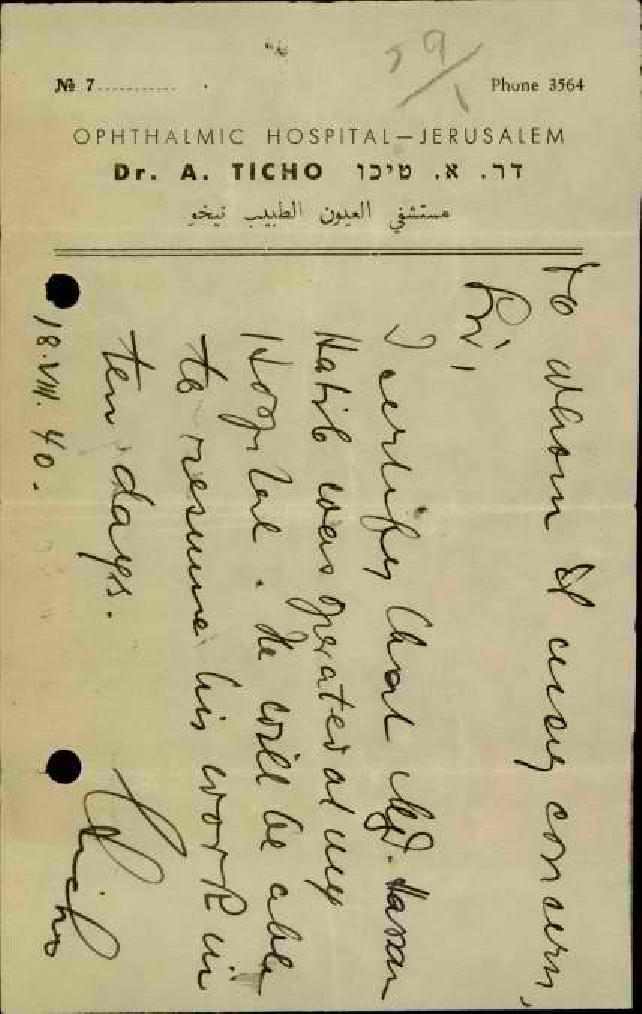 59/1
№ 7........... Phone 3564
OPHTHALMIC HOSPITAL—JERUSALEM
Dr. A. TICHO דר. א. טיכו
مستشفي العيون الطبيب تيخو
To whom it may concern,
Sir,
I certify that Md. Hasan
Hatib was operated at my
Hospital. He will be able
to resume his work in
ten days.
Ticho
18.VIII.40.